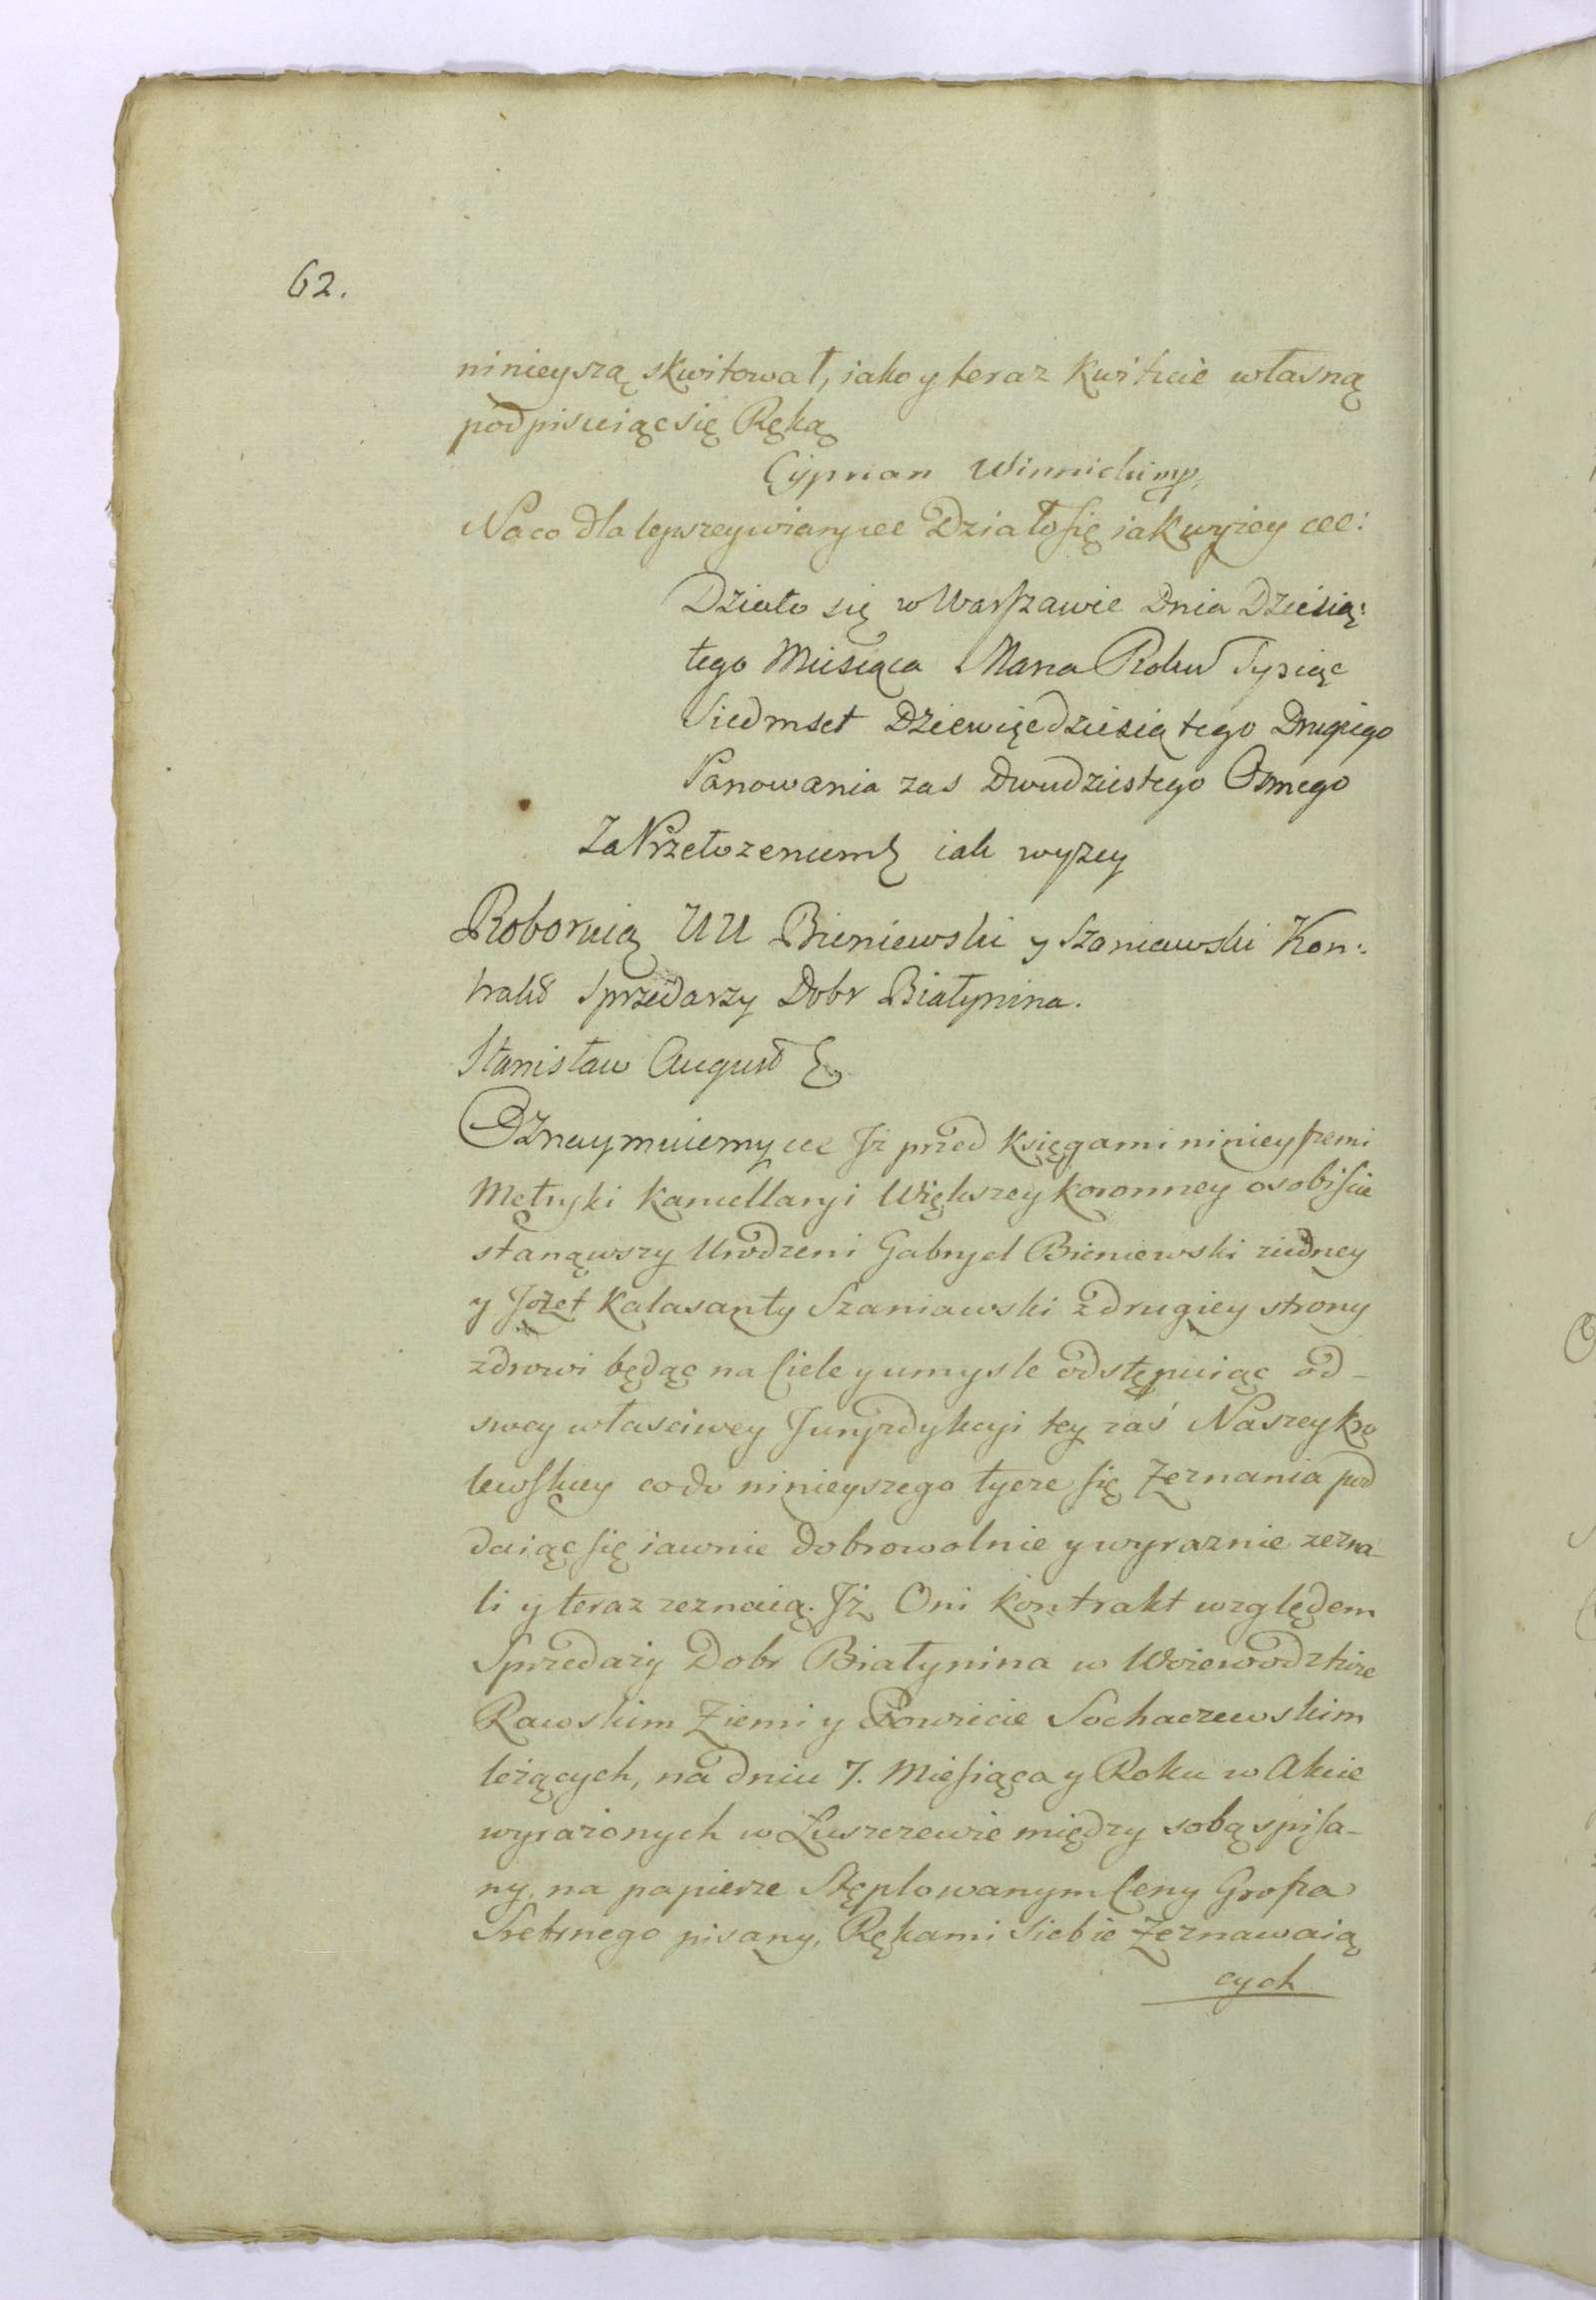 62.
ninieyszą skwitował, iako y teraz kwituie własną
podpisuiąc się Ręką
Cypryan Winnicki mp.
Na co dla lepszey wiary etc Działo się iak wyżey etc:
Działo się w Warszawie Dnia Dziesią:
tego Miesiąca Marca Roku Tysiąc
Siedmset Dziewięcdziesiątego Drugiego
Panowania zas Dwudziestego Osmego
Za Przełozeniem etc iak wyzey
Roboruią UU Bieniewski y Szaniawski Kon:
trakt Sprzedarzy Dobr Białynina.
Stanisław August etc
Oznaymuiemy etc Iż przed Księgami ninieyszemi
Metryki Kancellaryi Większey Koronney osobiscie
stanąwszy Urodzeni Gabryel Bieniewski ziedney
y Jozef Kalasanty Szaniawski z drugiey strony
zdrowi będąc na Ciele y umysle odstępuiąc od_
swey własciwey Juryzdykcyi tey zaś Naszey Kro
lewskiey co do ninieyszego tycze się Zeznania pod
daiąc się iawnie dobrowolnie y wyraznie zezna_
li y teraz zeznaią. Iż Oni Kontrakt względem
Sprzedaży Dobr Białynina w Woiewodztwie
Rawskim Ziemi y Powiecie Sochaczewskim
leżących, na dniu 7. Miesiąca y Roku w Akcie
wyrażonych w Łuszczewie między sobą spisa_
ny, na papierze Stęplowanym Ceny Grosza
Srebrnego pisany, Rękami Siebie Zeznawaią
cych